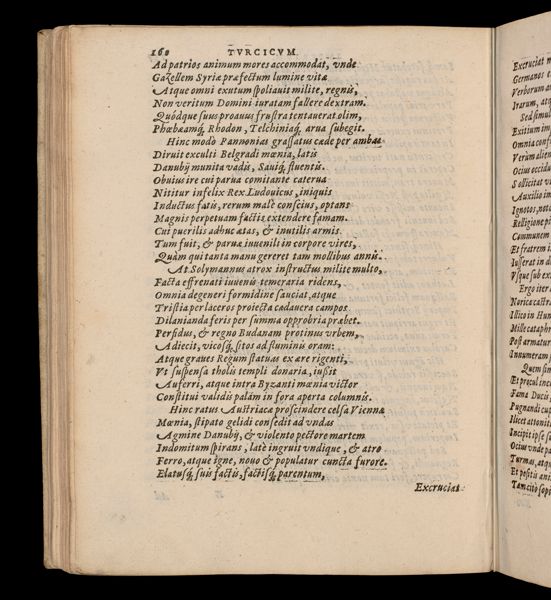 160 TVRCICVM.
Ad patrios animum mores accommodat, vnde
Gazellem Syriæ præfectum lumine vitæ
Atque omni exutum spoliauit milite, regnis,
Non veritum Domini iuratam fallere dextram.
Quódque suus proauus frustra tentauerat olim,
Phœbæamq́; Rhodon, Telchiniaq́; arua subegit.
Hinc modò Pannonias grassatus cæde per ambas
Diruit exculti Belgradi mœnia, latis
Danubij munita vadis, Sauiq́; fluentis.
Obuius ire cui parua comitante caterua
Nititur infelix Rex Ludouicus, iniquis
Inductus fatis, rerum malè conscius, optans
Magnis perpetuam factis extendere famam.
Cui puerilis adhuc ætas, & inutilis armis
Tum fuit, & paruæ iuuenili in corpore vires,
Quàm qui tanta manu gereret tam mollibus annis.
At Solymannus atrox instructus milite multo,
Facta effrenati iuuenis temeraria ridens,
Omnia degeneri formidine sauciat, atque
Tristia per laceros proiecta cadauera campos
Dilanianda feris per summa opprobria præbet.
Perfidus, & regno Budanam protinus vrbem,
Adiecit, vicosq́; sitos ad fluminis oram:
Atque graues Regum statuas ex ære rigenti,
Vt suspensa tholis templi donaria, iussit
Auferri, atque intra Byzanti mœnia victor
Constitui validis palàm in fora aperta columnis.
Hinc ratus Austriacæ proscindere celsa Viennæ
Mœnia, stipato gelidi consedit ad vndas
Agmine Danubij, & violento pectore martem
Indomitum spirans, latè ingruit vndique, & atro
Ferro, atque igne, nouo & populatur cuncta furore.
Elatusq́; suis factis, factisq́; parentum,
Excruciat
Excruciat
Germanos
Verborum
Irarum,
Sed simul
Exitium
Omnia
Verum
Ocius
Sollicitat
Auxilio
Ignotos,
Religione
Communem
Et fratrem
Iusserat in
Vsque sub
Ergo iter
Norica
Illico in
Mille
Post
Innumeram
Quem
Et procul
Fama Ducis,
Pugnandi
Ilicet
Incipit ipse
Ocius
Turmas,
Et positis
Tam citò